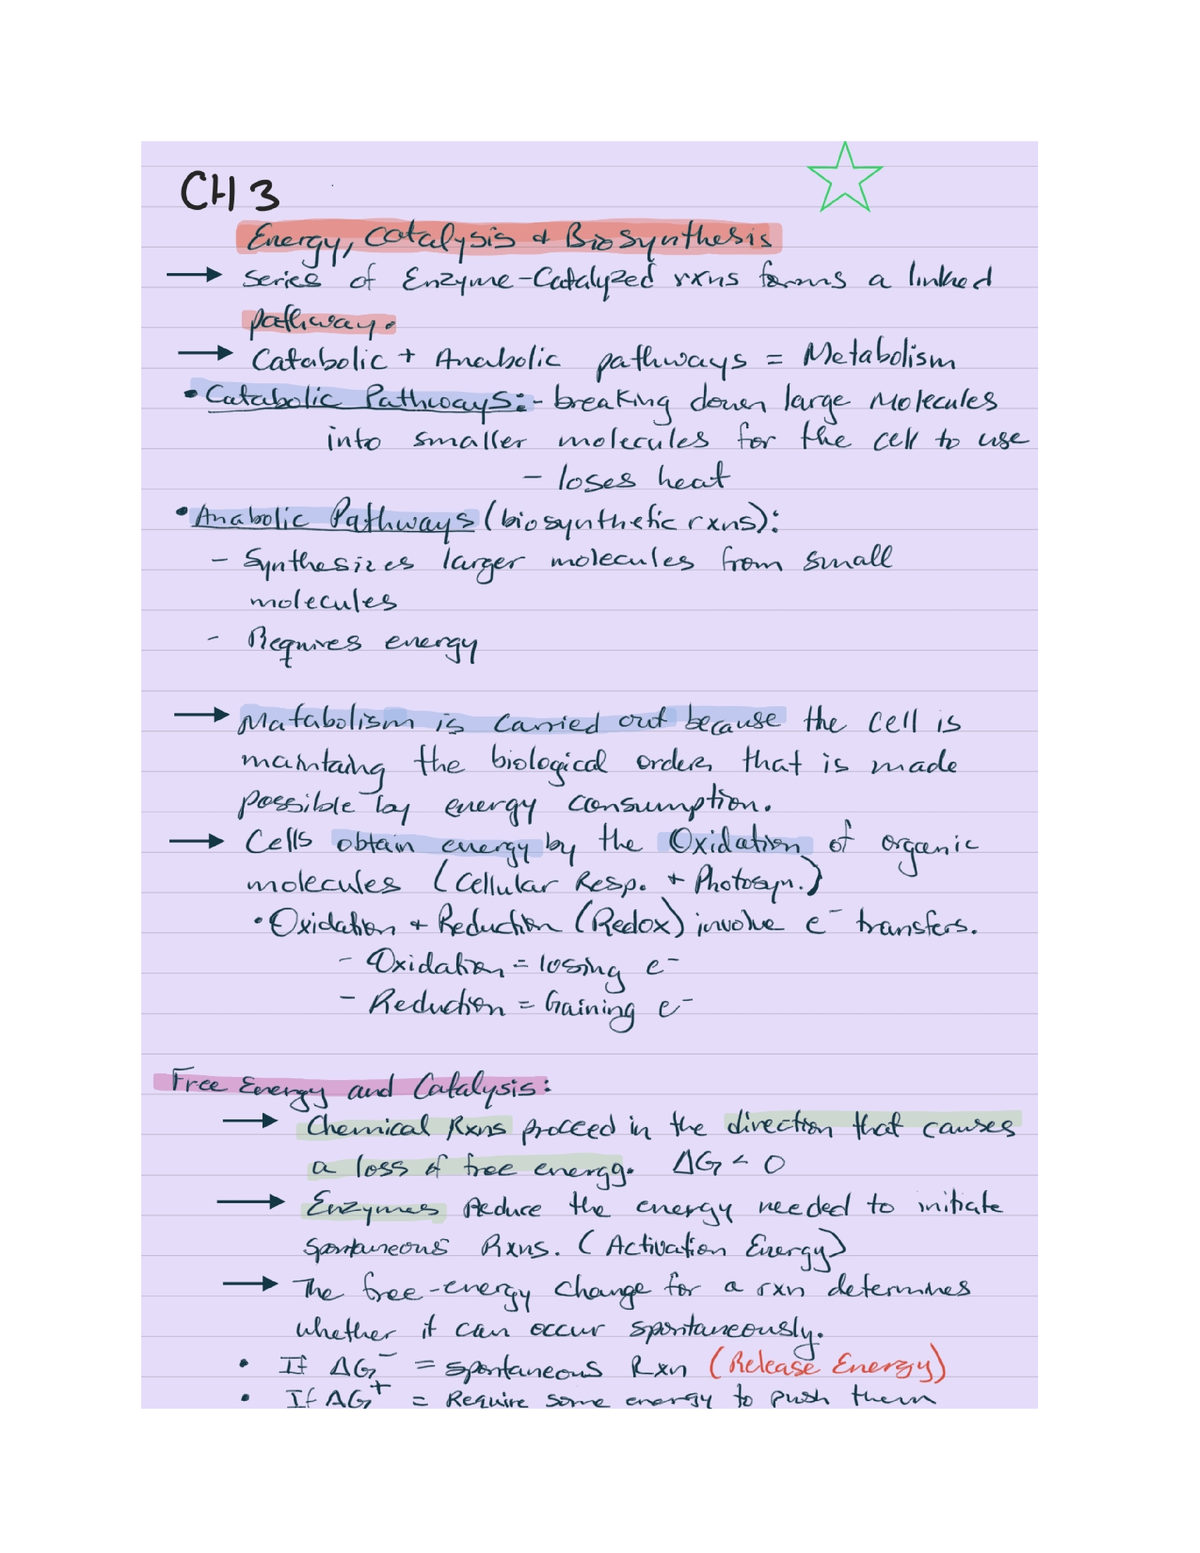 CH 3
Energy, Catalysis + Biosynthesis
→ series of Enzyme-Catalyzed rxns forms a linked
pathway.
→ Catabolic + Anabolic pathways = Metabolism
• Catabolic Pathways: - breaking down large Molecules
into smaller molecules for the cell to use
- loses heat
• Anabolic Pathways (biosynthetic rxns):
- Synthesizes larger molecules from small
molecules
- Requires energy
→ Matabolism is carried out because the cell is
maintaing the biological order that is made
possible by energy consumption.
→ Cells obtain energy by the Oxidation of organic
molecules (Cellular Resp. + Photosyn.)
• Oxidation + Reduction (Redox) involve e⁻ transfers.
- Oxidation = losing e⁻
- Reduction = Gaining e⁻
Free Energy and Catalysis:
→ Chemical Rxns proceed in the direction that causes
a loss of free energy. ΔG < 0
→ Enzymes Reduce the energy needed to initiate
spontaneous Rxns. (Activation Energy)
→ The free-energy change for a rxn determines
whether it can occur spontaneously.
• If ΔG⁻ = spontaneous Rxn (Release Energy)
• If ΔG⁺ = Require some energy to push them